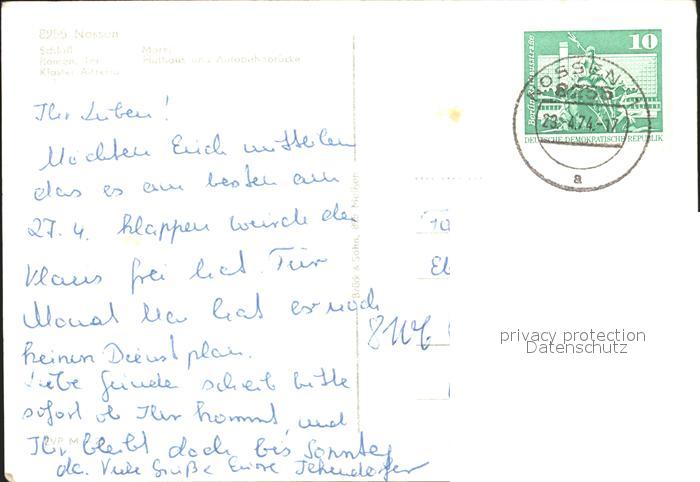 8255 Nossen
Schloß Markt
Rathaus und Autobahnbrücke
Kloster Altzella
Ihr Lieben!
Möchten Euch mitteilen
das es am besten am
27. 4. klappen würde da
Klaus frei hat. Für
Monat Mai hat er noch
keinen Dienstplan.
Liebe Gerda schreib bitte
sofort ob Ihr kommt, und
Ihr bleibt doch bis Sonntag
da. Viele Grüße Eure
Brück & Sohn, Meißen
10
Berlin
DEUTSCHE DEMOKRATISCHE REPUBLIK
NOSSEN
8255
23.-4.74.-17
a
privacy protection
Datenschutz